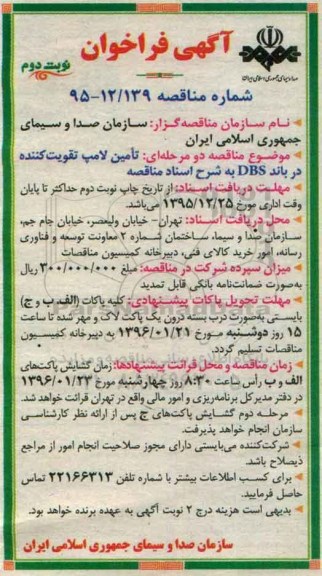 آگهی فراخوان
نوبت دوم
صدا و سیمای جمهوری اسلامی ایران
شماره مناقصه ۱۲/۱۳۹-۹۵
نام سازمان مناقصه‌گزار: سازمان صدا و سیمای
جمهوری اسلامی ایران
موضوع مناقصه دو مرحله‌ای: تأمین لامپ تقویت‌کننده
در باند DBS به شرح اسناد مناقصه
مهلت دریافت اسناد: از تاریخ چاپ نوبت دوم حداکثر تا پایان
وقت اداری مورخ ۱۳۹۵/۱۲/۲۵ می‌باشد.
محل دریافت اسناد: تهران- خیابان ولیعصر، خیابان جام جم،
سازمان صدا و سیما، ساختمان شماره ۲ معاونت توسعه و فناوری
رسانه، امور خرید کالای فنی، دبیرخانه کمیسیون مناقصات
میزان سپرده شرکت در مناقصه: مبلغ ۳۰۰/۰۰۰/۰۰۰ ریال
به‌صورت ضمانت‌نامه بانکی قابل تمدید
مهلت تحویل پاکات پیشنهادی: کلیه پاکات (الف، ب و ج)
بایستی به‌صورت درب بسته درون یک پاکت لاک و مهر شده تا ساعت
۱۵ روز دوشنبه مورخ ۱۳۹۶/۰۱/۲۱ به دبیرخانه کمیسیون
مناقصات تسلیم گردد.
زمان مناقصه و محل قرائت پیشنهادها: زمان گشایش پاکت‌های
الف و ب رأس ساعت ۸:۳۰ روز چهارشنبه مورخ ۱۳۹۶/۰۱/۲۳
در دفتر مدیرکل برنامه‌ریزی و امور مالی واقع در تهران قرائت خواهد شد.
مرحله دوم گشایش پاکت‌های ج پس از ارائه نظر کارشناسی
سازمان انجام خواهد پذیرفت.
شرکت‌کننده می‌بایستی دارای مجوز صلاحیت انجام امور از مراجع
ذیصلاح باشد.
برای کسب اطلاعات بیشتر با شماره تلفن ۲۲۱۶۶۳۱۳ تماس
حاصل فرمایید.
بدیهی است هزینه درج ۲ نوبت آگهی به عهده برنده خواهد بود.
سازمان صدا و سیمای جمهوری اسلامی ایران